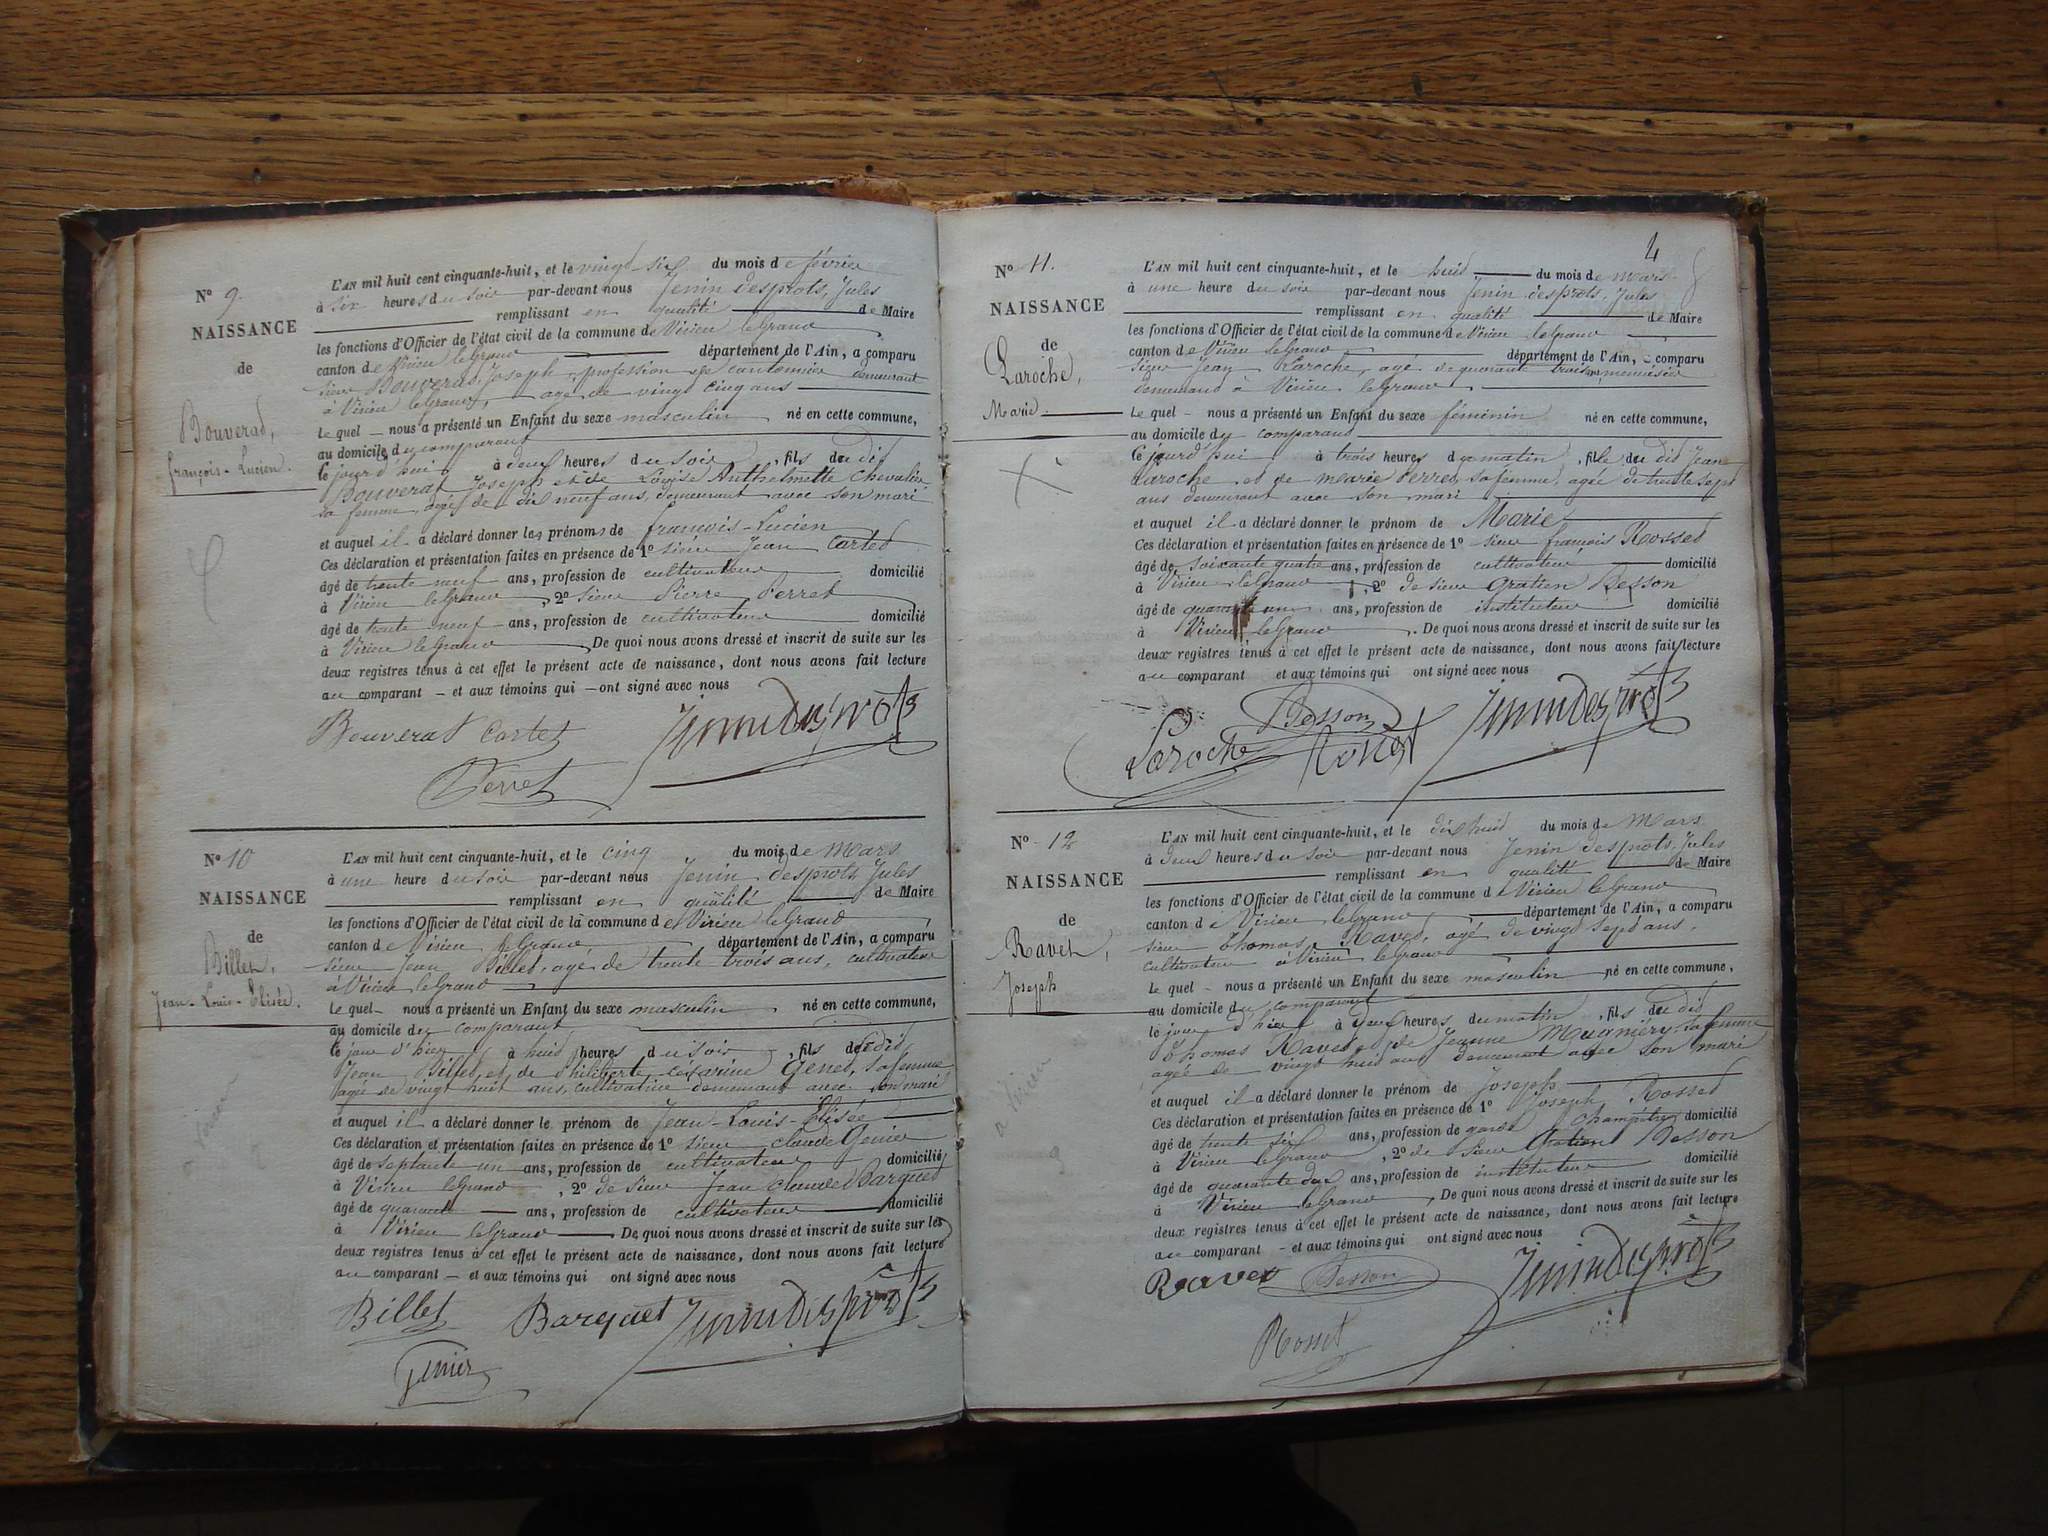 Nº 9.
NAISSANCE
de
Bouverat,
françois-Lucien.
L'AN mil huit cent cinquante-huit, et le vingt-six du mois de février
à six heures du soir par-devant nous Jenin desprots, Jules
remplissant en qualité de Maire
les fonctions d'Officier de l'état civil de la commune de Virieu leGrand
canton de Virieu leGrand département de l'Ain, a comparu
sieur Bouverat, Joseph, profession de cantonnier demeurant
à Virieu leGrand, agé de vingt cinq ans
le quel nous a présenté un Enfant du sexe masculin né en cette commune,
au domicile du comparant
le jour d'hui à deux heures du soir, fils du dit
Bouverat Joseph et de Louise Anthelmette Chevalier
sa femme, agée de dix neuf ans, demeurant avec son mari
et auquel il a déclaré donner les prénoms de francois-Lucien
Ces déclaration et présentation faites en présence de 1º sieur Jean Cartet
âgé de trente neuf ans, profession de cultivateur domicilié
à Virieu leGrand, 2º sieur Pierre Perret
âgé de trente neuf ans, profession de cultivateur domicilié
à Virieu leGrand. De quoi nous avons dressé et inscrit de suite sur les
deux registres tenus à cet effet le présent acte de naissance, dont nous avons fait lecture
au comparant et aux témoins qui ont signé avec nous
Bouverat Cartet Jenindesprots
Perret
Nº 10
NAISSANCE
de
Billet,
Jean-Louis-Elisée.
L'AN mil huit cent cinquante-huit, et le cinq du mois de Mars
à une heure du soir par-devant nous Jenin desprots Jules
remplissant en qualité de Maire
les fonctions d'Officier de l'état civil de la commune de Virieu leGrand
canton de Virieu leGrand département de l'Ain, a comparu
sieur Jean Billet, agé de trente trois ans, cultivateur
à Virieu leGrand
le quel nous a présenté un Enfant du sexe masculin né en cette commune,
au domicile du comparant
le jour d'hier à huit heures du soir, fils dudit
Jean Billet et de Philiberte cesarine Genet, sa femme
agée de vingt huit ans, cultivatrice demeurant avec son mari
et auquel il a déclaré donner le prénom de Jean-Louis-Elisée
Ces déclaration et présentation faites en présence de 1º sieur claude Genier
âgé de septante un ans, profession de cultivateur domicilié
à Virieu leGrand, 2º de sieur Jean claude Barquet
âgé de quarante ans, profession de cultivateur domicilié
à Virieu leGrand De quoi nous avons dressé et inscrit de suite sur les
deux registres tenus à cet effet le présent acte de naissance, dont nous avons fait lecture
au comparant et aux témoins qui ont signé avec nous
Billet Barquet Jenindesprots
Genier
4
Nº 11.
NAISSANCE
de
Laroche,
Marie
L'AN mil huit cent cinquante-huit, et le huit du mois de Mars
à une heure du soir par-devant nous Jenin desprots, Jules
remplissant en qualité de Maire
les fonctions d'Officier de l'état civil de la commune de Virieu leGrand
canton de Virieu leGrand département de l'Ain, a comparu
sieur Jean Laroche, agé de quarante trois ans, menuisier
demeurant à Virieu leGrand
le quel nous a présenté un Enfant du sexe féminin né en cette commune,
au domicile du comparant
le jourd'hui à trois heures du matin, fille du dit Jean
Laroche et de Marie Perret, sa femme, agée de trente sept
ans demeurant avec son mari
et auquel il a déclaré donner le prénom de Marie
Ces déclaration et présentation faites en présence de 1º sieur françois Rosset
âgé de soixante quatre ans, profession de cultivateur domicilié
à Virieu leGrand, 2º de sieur Gratien Besson
âgé de ans, profession de instituteur domicilié
à Virieu leGrand. De quoi nous avons dressé et inscrit de suite sur les
deux registres tenus à cet effet le présent acte de naissance, dont nous avons fait lecture
au comparant et aux témoins qui ont signé avec nous
Besson Jenindesprots
Laroche Rosset
Nº 12
NAISSANCE
de
Ravet,
Joseph
a Virieu
L'AN mil huit cent cinquante-huit, et le dix huit du mois de Mars
à deux heures du soir par-devant nous Jenin desprots, Jules
remplissant en qualité de Maire
les fonctions d'Officier de l'état civil de la commune de Virieu leGrand
canton de Virieu leGrand département de l'Ain, a comparu
sieur Thomas Ravet, agé de vingt sept ans,
cultivateur à Virieu leGrand
le quel nous a présenté un Enfant du sexe masculin né en cette commune,
au domicile du comparant
le jour d'hier à deux heures du matin, fils du dit
Thomas Ravet et de Jeanne Mugniéry sa femme
agée de vingt huit ans demeurant avec son mari
et auquel il a déclaré donner le prénom de Joseph
Ces déclaration et présentation faites en présence de 1º Joseph Rosset
âgé de trente six ans, profession de garde Champêtre domicilié
à Virieu leGrand, 2º de sieur Gratien Besson
âgé de quarante deux ans, profession de instituteur domicilié
à Virieu leGrand. De quoi nous avons dressé et inscrit de suite sur les
deux registres tenus à cet effet le présent acte de naissance, dont nous avons fait lecture
au comparant et aux témoins qui ont signé avec nous
Ravet Besson Jenindesprots
Rosset